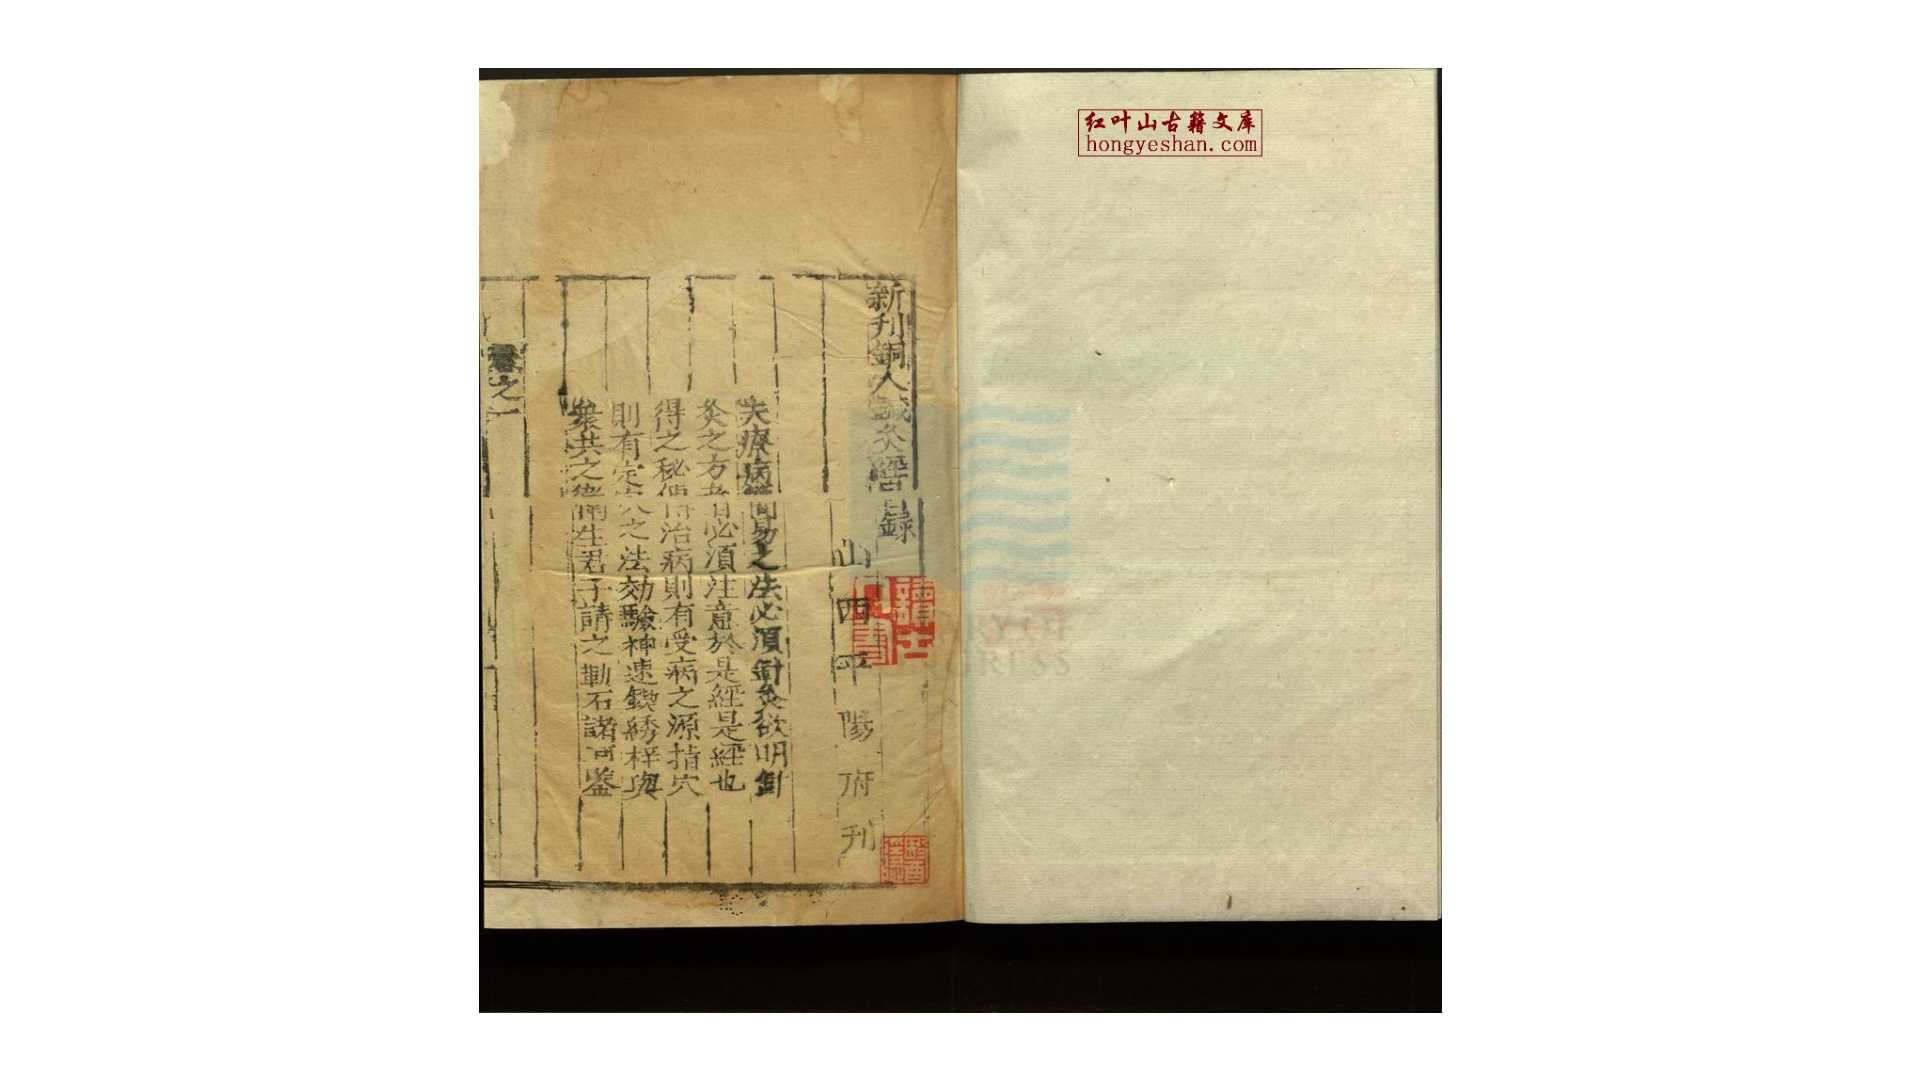 红叶山古籍文库
hongyeshan.com
新刋銅人鍼灸經目録
山西平陽府刋
夫療病簡易之法必須針灸欲明針
灸之方者必須注意於是經是經也
得之秘傳得治病則有受病之源指穴
則有定穴之法効驗神速鋟綉梓與
衆共之儒生君子請之勒石諸可鑒
卷之一